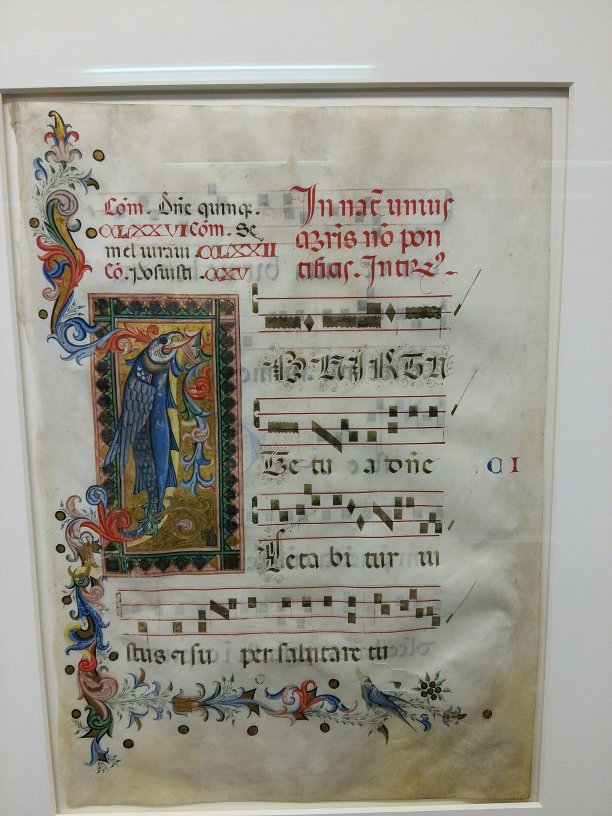 Com̃. Dñe quinq̃.
CCLXXVI Com̃. Se
mel iuraui .CCLXXII
Cõ. posuisti .CCXV.
In nat̃ unius
m̃ris nõ pon
tificis. Intr̃.
IN VIRTU
te tu a dñe
letabitur iu
stus ⁊ su per salutare tu
CI